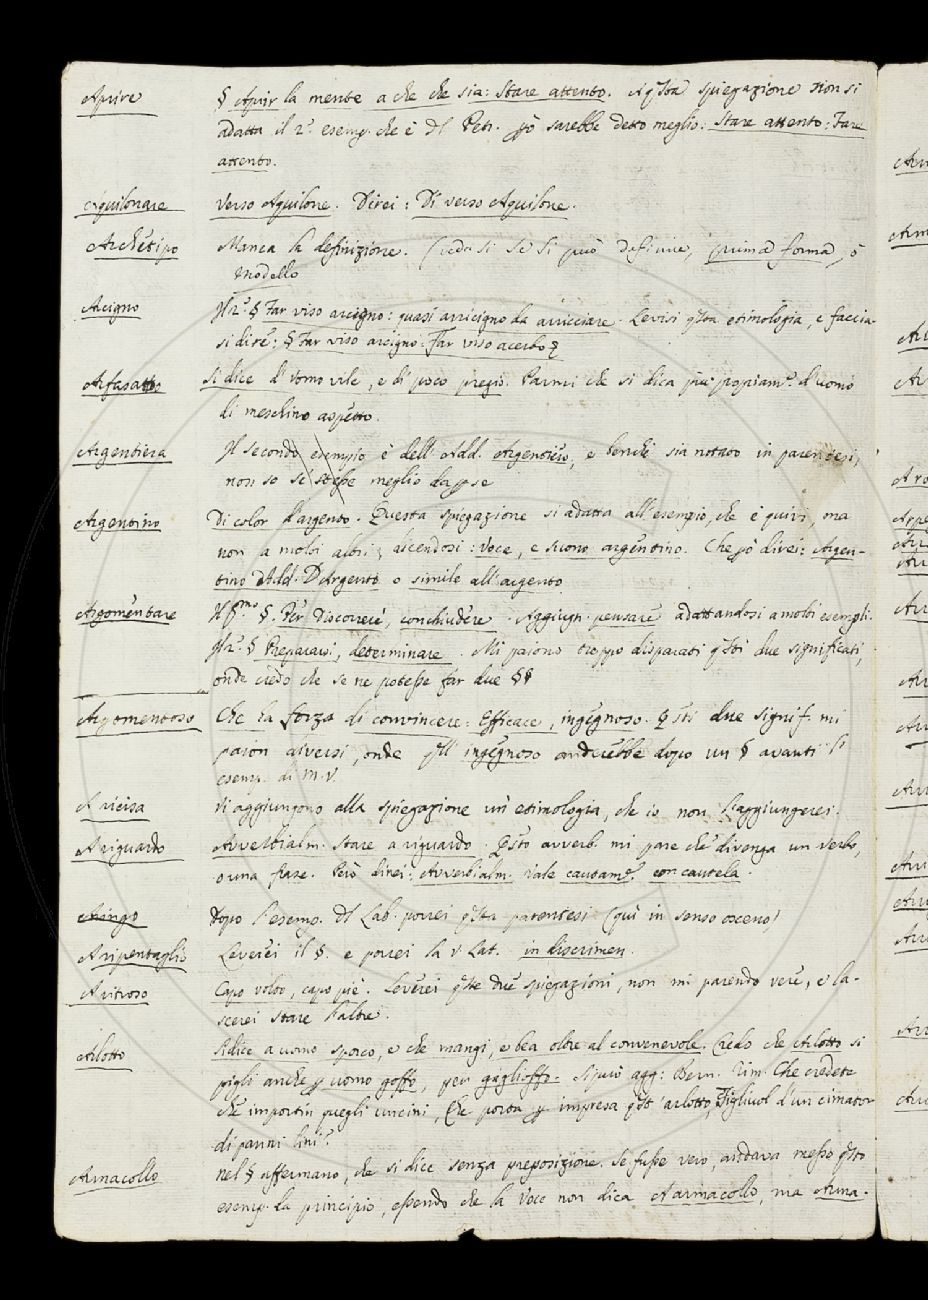 Aprire § Aprir la mente a che che sia: Stare attento. A qsta spiegazione non si
adatta il 2°. esemp. che è dl Petr. pò sarebbe detto meglio: Stare attento: Fare
attento.
Aquilonare Verso Aquilone. Direi: Di verso Aquilone.
Archétipo Manca la definizione. (vedasi se si può definire, prima forma, ò
modello
Arcigno Il 2°. § Far viso arcigno: quasi arricigno da arricciare. Levisi qsta etimologia, e faccia-
si dire: § Far viso arcigno: Far viso acerbo
Arfasatto Si dice d'Uomo vile, e di poco pregio. Parmi che si dica più propriamte. d'uomo
di meschino aspetto.
Argentiera Il secondo esempio è dell'Add. Argentiero, e benchè sia notato in parentesi,
non so se stesse meglio da pse
Argentino Di color d'argento. Questa spiegazione si adatta all'esempio, che è quivi, ma
non a molti altri; dicendosi: voce, e suono argentino. Che pò direi: Argen-
tino Add. D'Argento o simile all'argento
Argomentare Il pmo. §. Per Discorrere, conchiudere. Aggiugn. pensare adattandosi a molti esempli.
Il 2°. § Prepararsi, determinare. Mi paiono troppo disparati qsti due significati,
onde credo che se ne potesse far due §§
Argomentoso Che ha forza di convincere: Efficace, ingegnoso. Qsti due signif. mi
paion diversi, onde qll' ingegnoso anderebbe dopo un § avanti li
esemp. di m.v.
A ricisa Vi aggiungono alla spiegazione un'etimologia, che io non l'aggiungerei.
A riguardo Avverbialm. Stare a riguardo. Qsto avverb. mi pare che divenga un verbo,
o una frase. Però direi: Avverbialm. Vale cautamte, con cautela.
Aringo Dopo l'esemp. dl Lab. porrei qsta parentesi (qui in senso osceno)
A ripentaglio Leverei il §. e porrei la v. Lat. in discrimen.
A ritroso Capo volto, capo piè. Leverei qste due spiegazioni, non mi parendo vere, e la-
scerei stare l'altre.
Arlotto Si dice a uomo sporco, e che mangi, e bea oltre al convenevole. Credo che Arlotto si
pigli anche p uomo goffo, per gaglioffo. Si può agg: Bern. rim. Che credete
che importin quegli uncini, Che porta p impresa qst'arlotto, Figliuol d'un cimator
di panni lini?
Armacollo nel § affermano, che si dice senza preposizione. Se fusse vero, andava messo qsto
esemp. la principio, essendo che la Voce non dica A armacollo, ma Arma-